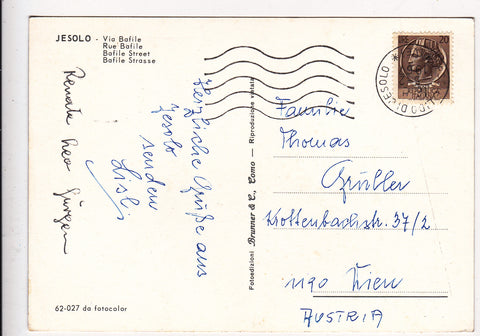 JESOLO - Via Bafile
Rue Bafile
Bafile Street
Bafile Strasse
Herzliche Grüße aus
Jesolo
senden
Lisl
Renate Leo Jürgen
62-027 da fotocolor
Fotoedizioni Brunner & C., Como — Riproduzione vietata
20
LIDO DI JESOLO
Familie
Thomas
Krottenbachstr. 37/2
1190 Wien
AUSTRIA